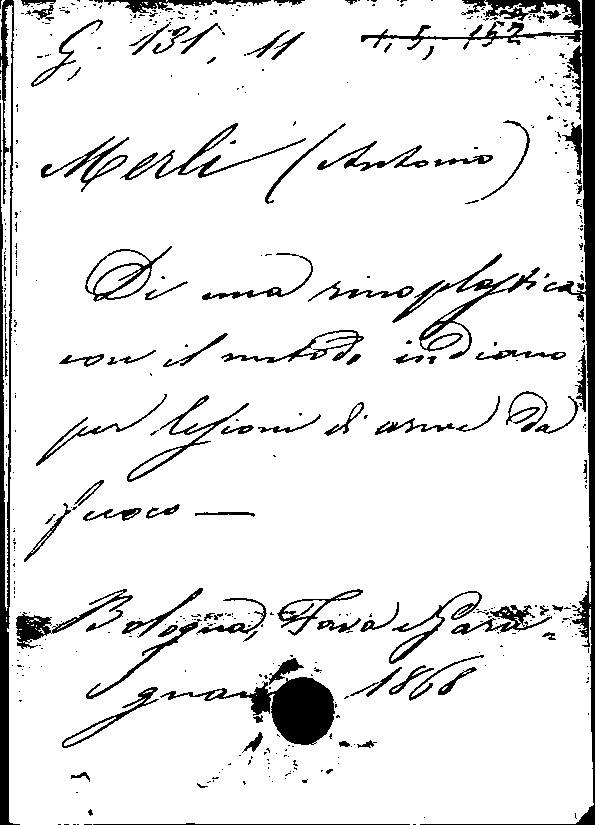 G, 131, 11 1, 5, 152
Merli (Antonio)
Di una rinoplastica
con il metodo indiano
per lesioni di arme da
fuoco —
Bologna, Fava e Gara-
gnani 1868